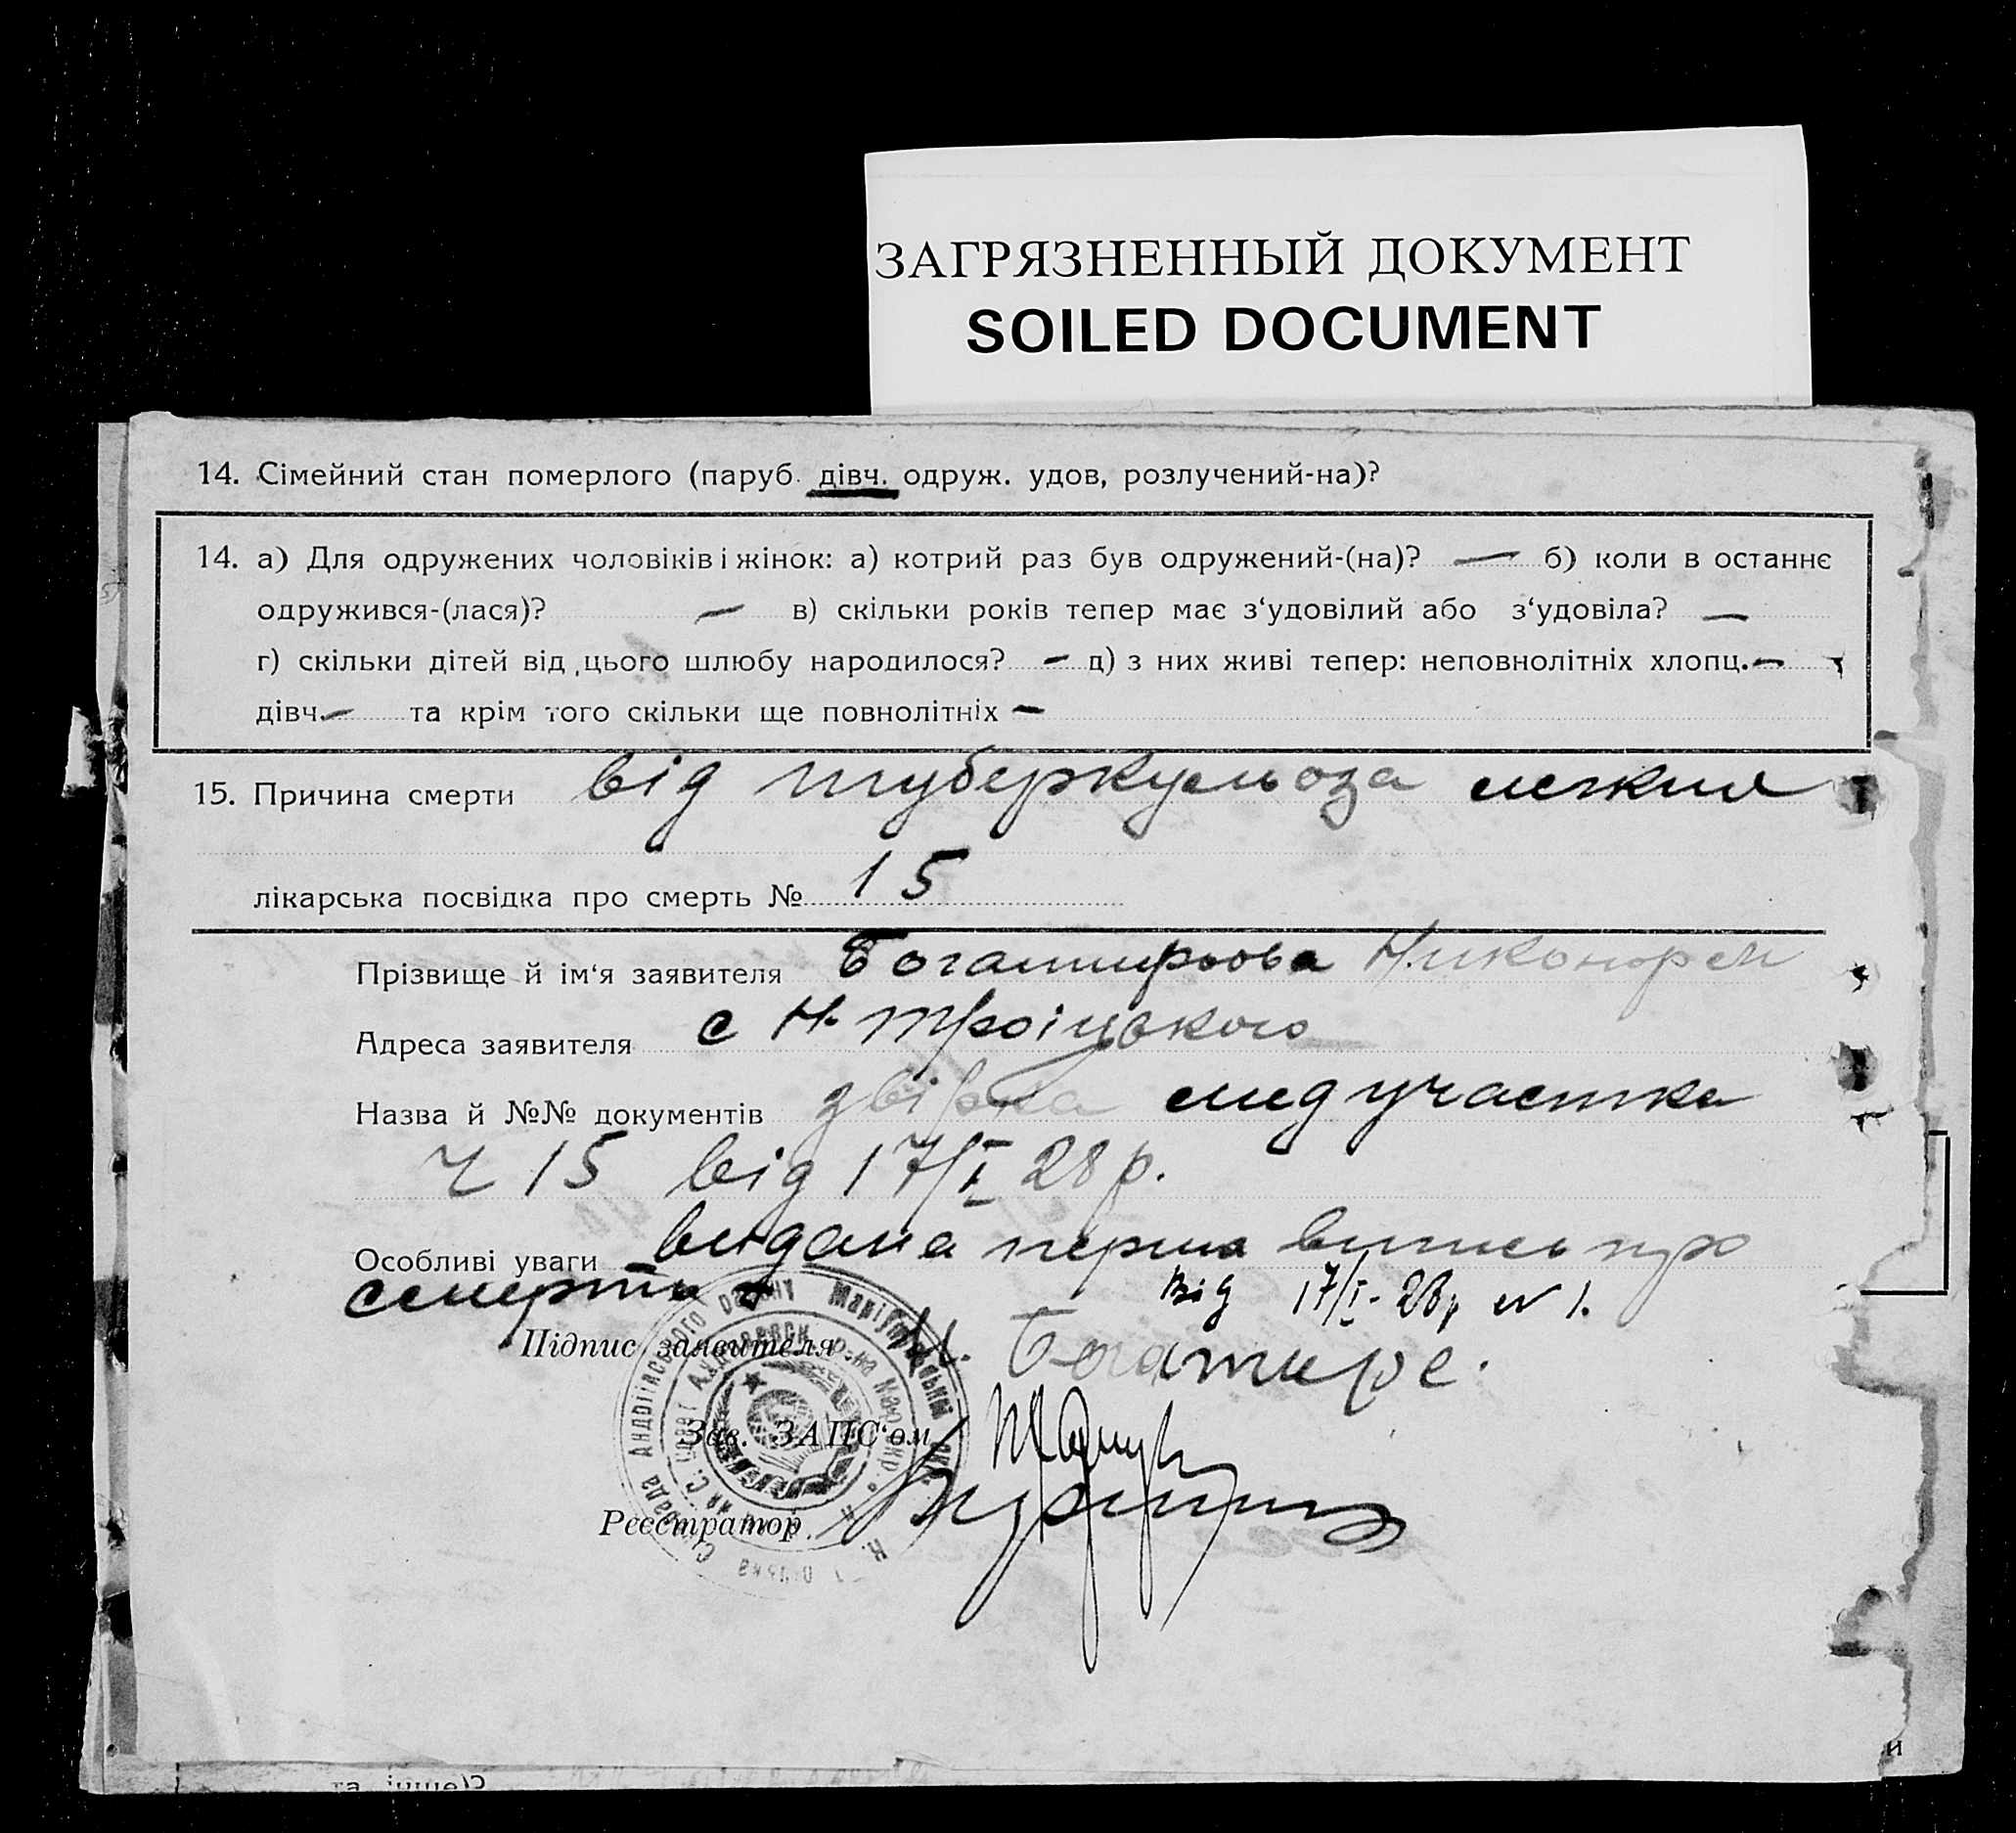 ЗАГРЯЗНЕННЫЙ ДОКУМЕНТ
SOILED DOCUMENT
14. Сімейний стан померлого (паруб. дівч. одруж. удов, розлучений-на)?
14. а) Для одружених чоловіків і жінок: а) котрий раз був одружений-(на)? — б) коли в останнє
одружився-(лася)? — в) скільки років тепер має з‘удовілий або з‘удовіла? —
г) скільки дітей від цього шлюбу народилося? — д) з них живі тепер: неповнолітніх хлопц. —
дівч. — та крім того скільки ще повнолітніх —
15. Причина смерти від туберкульоза
лікарська посвідка про смерть № 15
Прізвище й ім‘я заявителя Богатирьова
Адреса заявителя с Н. Троіцького
Назва й №№ документів медучастка
Ч 15 від 17/I 28 р.
Особливі уваги видана перша випись про
смерть від 17/I - 28 р № 1.
Підпис заявителя Н. Богатире.
Зав. ЗАПС‘ом
Реєстратор